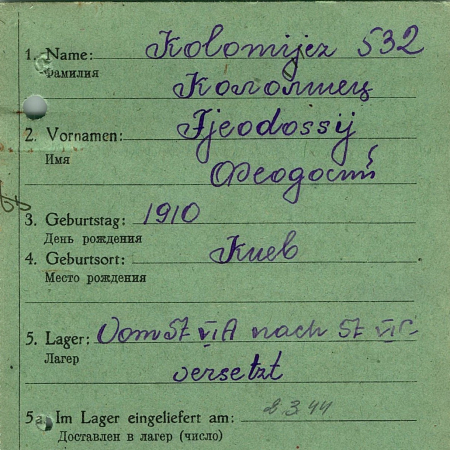 1. Name: Kolomijez 532
Фамилия
Коломиец
2. Vornamen: Fjeodossij
Имя
Феодосий
3. Geburtstag: 1910
День рождения
4. Geburtsort: Киев
Место рождения
5. Lager: Vom St VI A nach St VI
Лагер
versetzt
5a Im Lager eingeliefert am: 2 3 44
Доставлен в лагер (число)